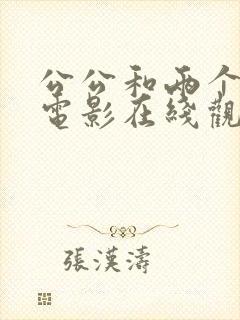 公公和兩个
電影在綫觀
張漢濤